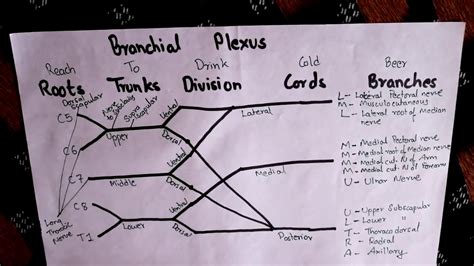 Branchial Plexus
Reach To Drink Cold Beer
Roots Trunks Division Cords Branches
Dorsal Scapular
Nerve to Subclavius
Supra Scapular
C5
C6
C7
C8
T1
Long Thoracic Nerve
Upper
Middle
Lower
Ventral
Dorsal
Ventral
Dorsal
Ventral
Dorsal
Lateral
Medial
Posterior
L- Lateral Pectoral nerve
M- Musculocutaneous
L- Lateral root of Median nerve
M- Medial Pectoral nerve
M- Medial root of Median nerve
M- Medial cut. N of Arm
M- Medial cut. N of Forearm
U- Ulnar Nerve
U- Upper Subscapular
L- Lower "
T- Thoracodorsal
R- Radial
A- Axillary